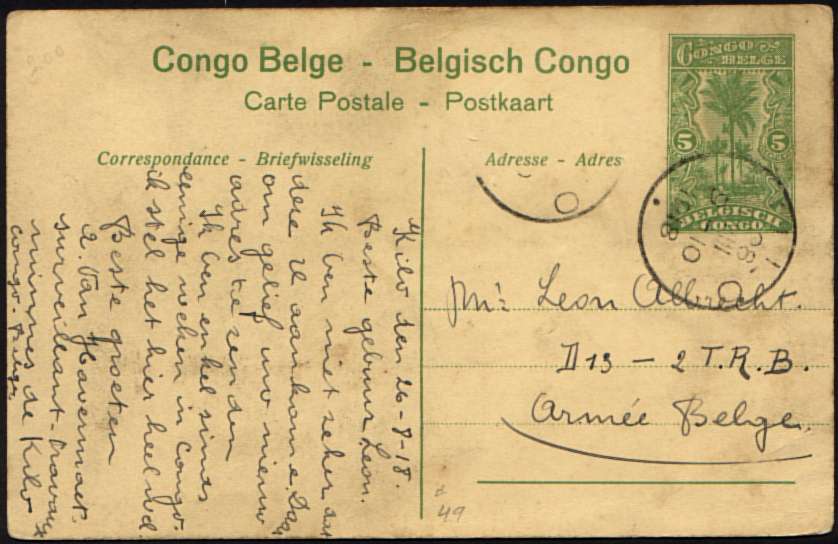 Congo Belge - Belgisch Congo
Carte Postale - Postkaart
Correspondance - Briefwisseling
Adresse - Adres
CONGO BELGE
5 5
BELGISCH CONGO
Kilo den 26-8-18.
Beste gebuur Leon.
Ik ben niet zeker dat
deze U aankome. Daar
om gelief uw nieuw
adres te zenden
Ik ben enkel sinds
eenige weken in Congo.
ik stel het hier heel wel.
Beste groeten
A. Van Havermaet.
surveillant-travaux
minnes de Kilo
Congo-belge
Mr Leon Albrecht.
D 13 - 2 T.R.B.
Armée Belge
49